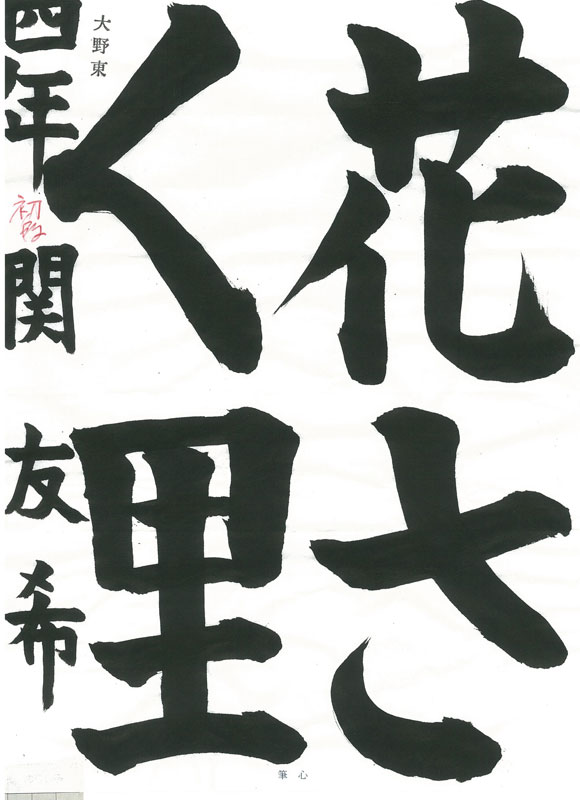 花さ
く里
大野東
四年 関 友希
初段
心筆